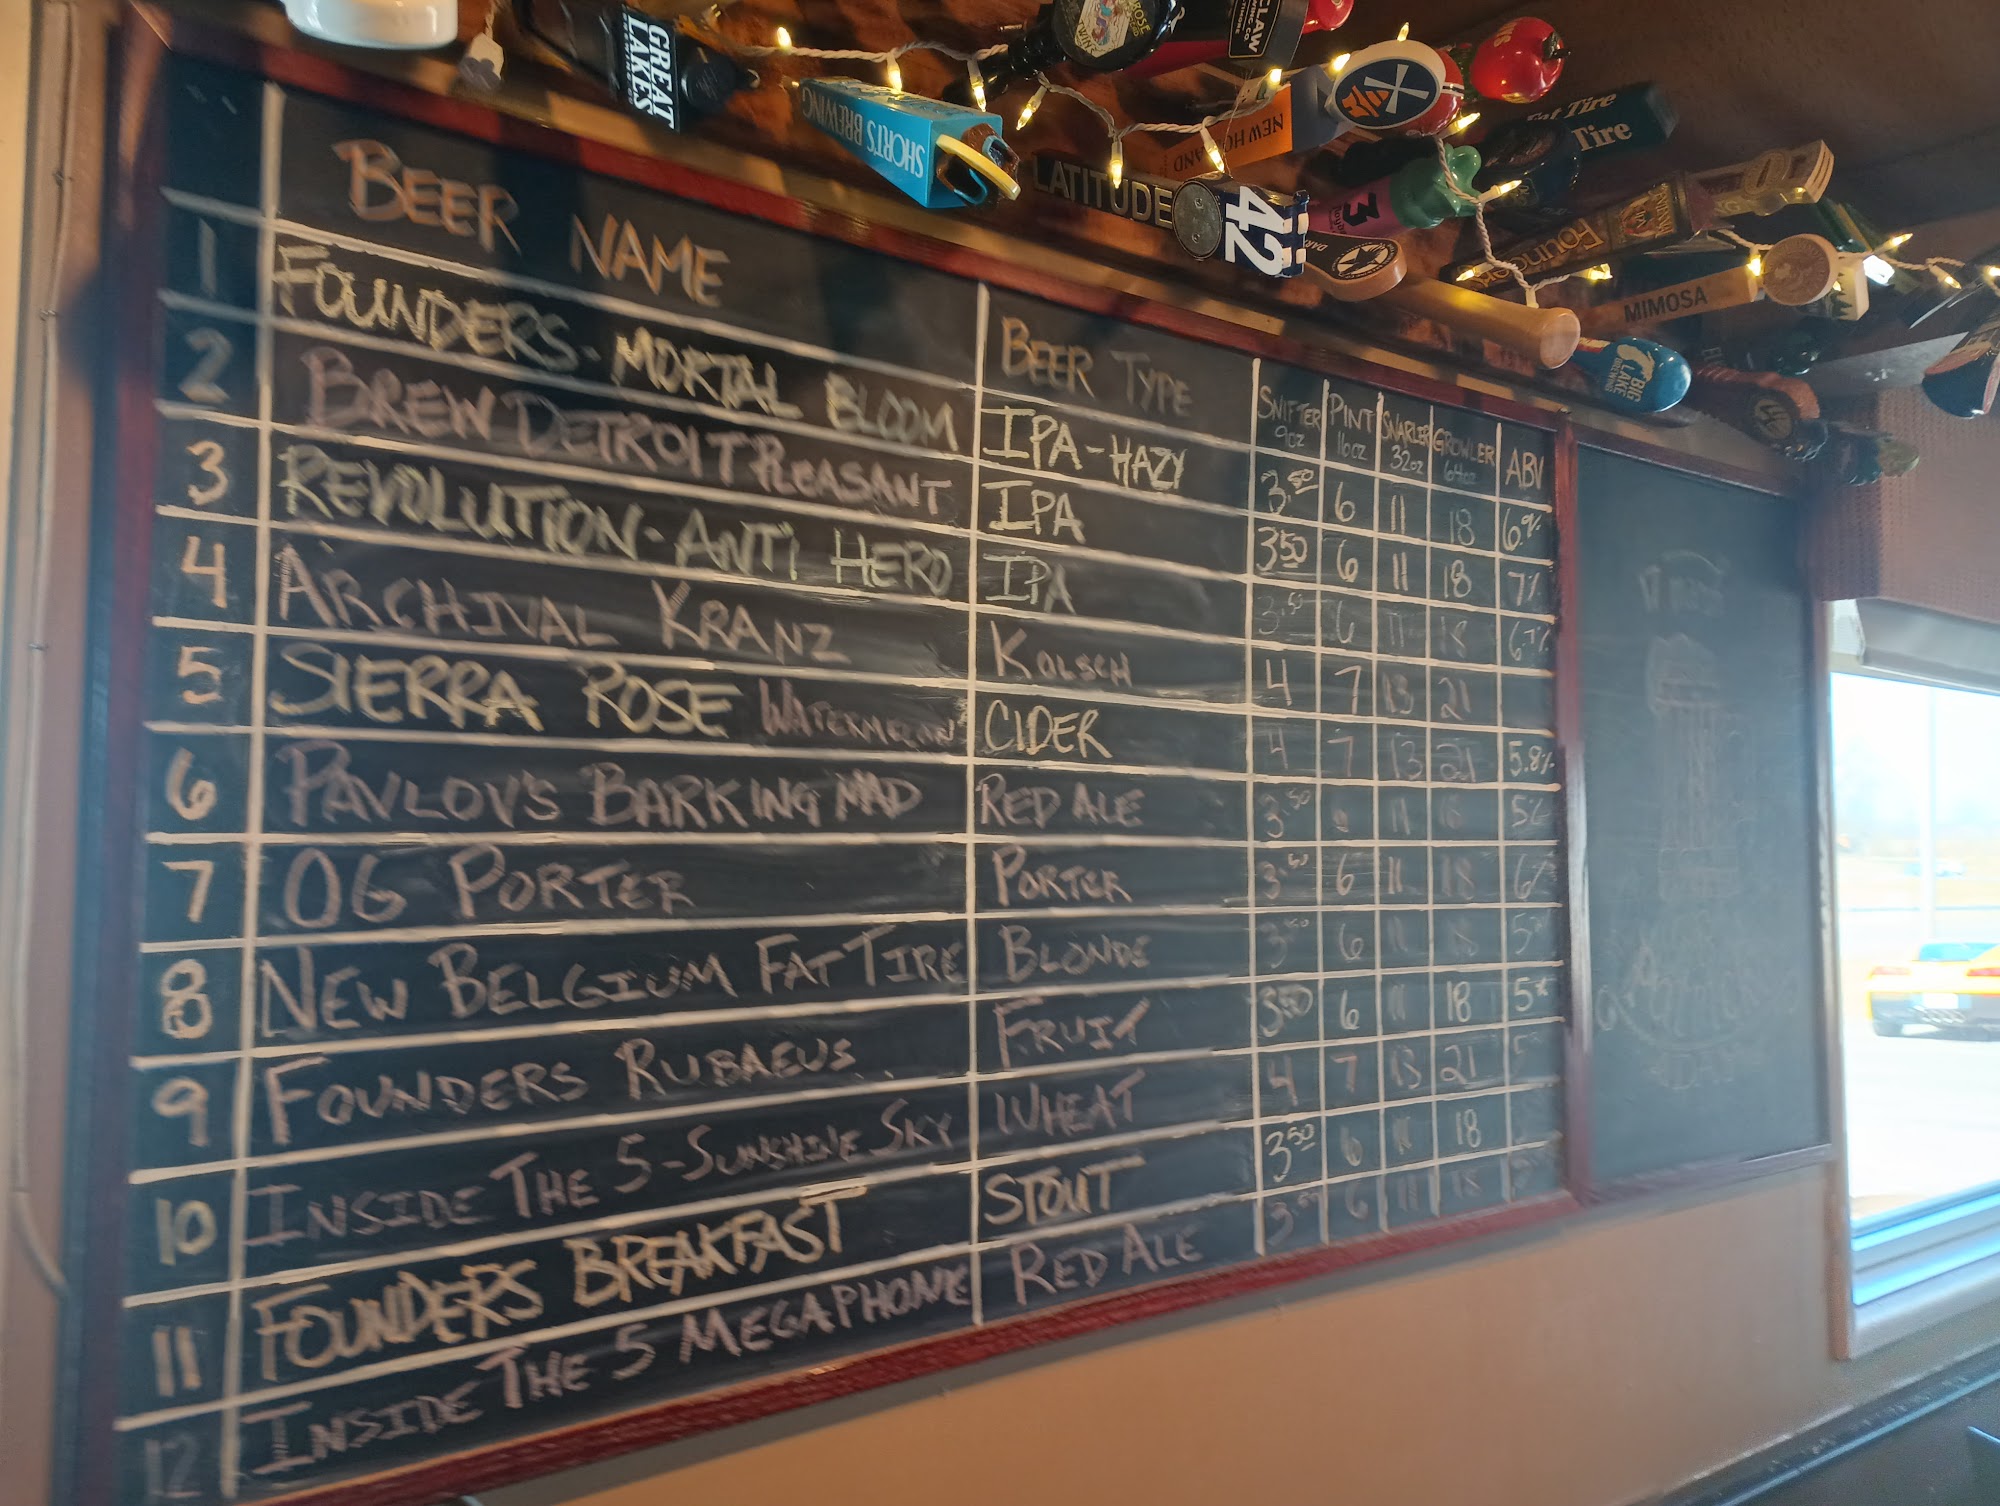 GREAT LAKES
SHORT'S BREWING
LATITUDE 42
NEW HOLLAND
Fat Tire
Tire
Founders
MIMOSA
BIG LAKE BREWING
BEER NAME BEER TYPE SNIFTER 9oz PINT 16oz SNARLER 32oz GROWLER 64oz ABV
1 FOUNDERS - MORTAL BLOOM IPA - HAZY 3.50 6 11 18
2 BREW DETROIT PLEASANT IPA 350 6 11 18 7%
3 REVOLUTION - ANTI HERO IPA 3.50 6 11 18 6.7%
4 ARCHIVAL KRANZ KOLSCH 4 7 13 21
5 SIERRA ROSE WATERMELON CIDER 4 7 13 21 5.8%
6 PAVLOV'S BARKING MAD RED ALE 3.50 11
7 OG PORTER PORTER 3.50 6 11 18 6%
8 NEW BELGIUM FAT TIRE BLONDE 3.50 6 11 18
9 FOUNDERS RUBAEUS FRUIT 350 6 11 18
10 INSIDE THE 5 - SUNSHINE SKY WHEAT 4 7 13 21
11 FOUNDERS BREAKFAST STOUT 350 6 11 18
12 INSIDE THE 5 MEGAPHONE RED ALE 3.50 6 11